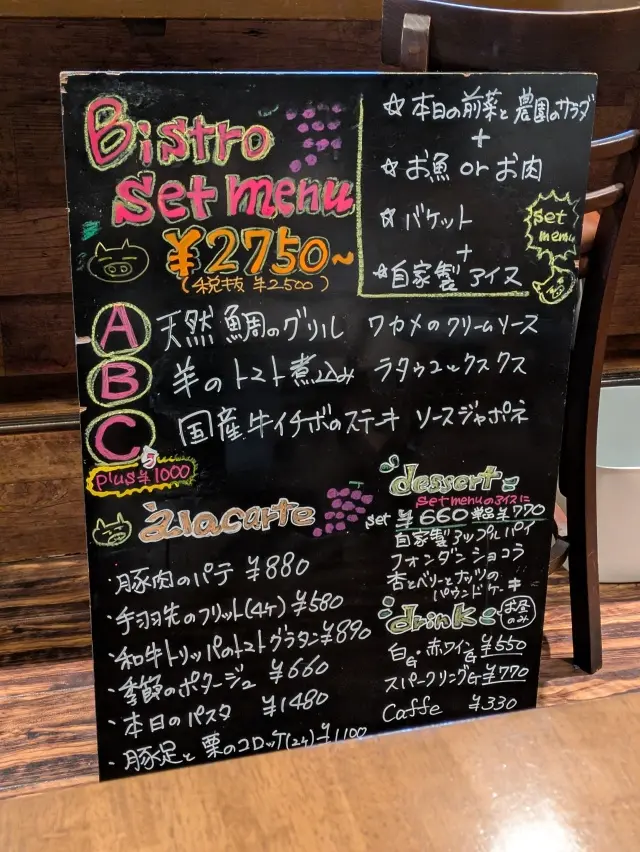 Bistro
Set menu
¥2750~
(税抜 ¥2500)
☆本日の前菜と農園のサラダ
+
☆お魚 or お肉
☆バケット
+
☆自家製アイス
set
menu
A 天然鯛のグリル ワカメのクリームソース
B 羊のトマト煮込み ラタゥユックスクス
C 国産牛イチボのステーキ ソースジャポネ
plus¥1000
àlacarte
・豚肉のパテ ¥880
・手羽先のフリット(4ヶ) ¥580
・和牛トリッパのトマトグラタン ¥890
・季節のポタージュ ¥660
・本日のパスタ ¥1480
・豚足と栗のコロッケ(2ヶ) ¥1100
dessert
set menuのアイスに
set ¥660 単品¥770
自家製アップルパイ
フォンダンショコラ
杏とベリーとナッツの
パウンドケーキ
drink
お昼
のみ
白G・赤ワインG ¥550
スパークリングG ¥770
Caffe ¥330